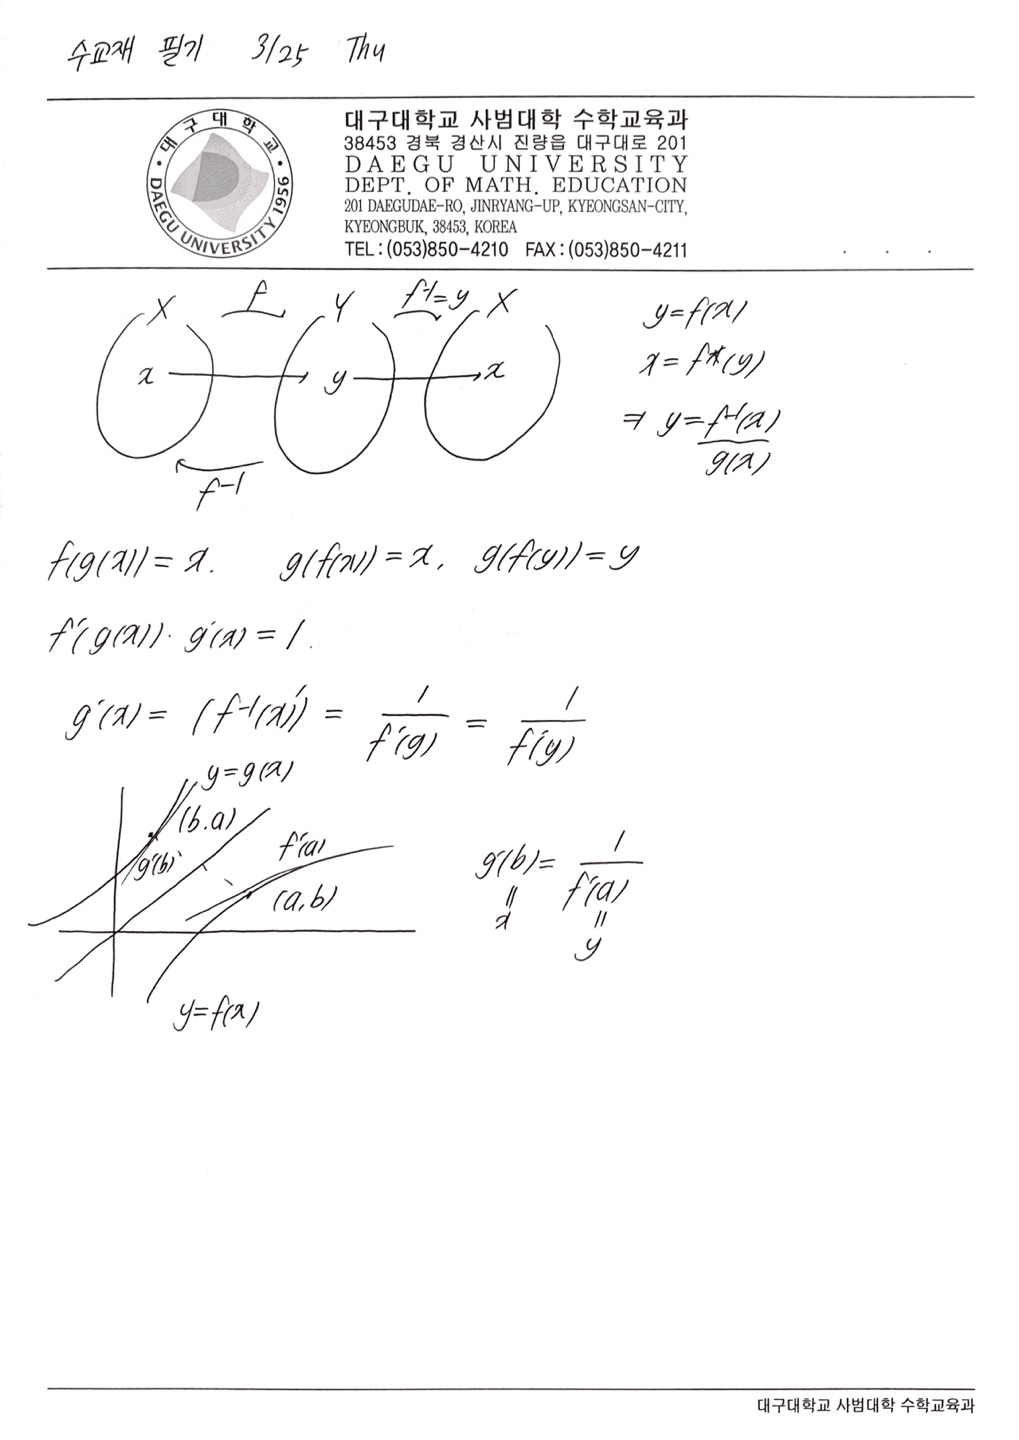 수교재 필기 3/25 Thu
대구대학교
DAEGU UNIVERSITY 1956
대구대학교 사범대학 수학교육과
38453 경북 경산시 진량읍 대구대로 201
DAEGU UNIVERSITY
DEPT. OF MATH. EDUCATION
201 DAEGUDAE-RO, JINRYANG-UP, KYEONGSAN-CITY,
KYEONGBUK, 38453, KOREA
TEL : (053)850-4210 FAX : (053)850-4211
X f Y f⁻¹=y X
x y x
f⁻¹
y=f(x)
x=f⁻¹(y)
⇒ y=f⁻¹(x)
g(x)
f(g(x))=x. g(f(x))=x, g(f(y))=y
f'(g(x))·g'(x)=1.
g'(x) = (f⁻¹(x)') = 1/f'(g) = 1/f'(y)
y=g(x)
(b.a)
g'(b)
f'(a)
(a,b)
y=f(x)
g'(b)= 1/f'(a)
= =
x y
대구대학교 사범대학 수학교육과